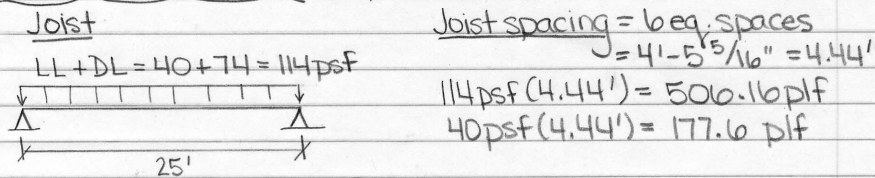 Joist
LL+DL = 40+74 = 114psf
25'
Joist spacing = 6 eq. spaces
= 4'-5 5/16" = 4.44'
114psf(4.44') = 506.16plf
40psf(4.44') = 177.6 plf